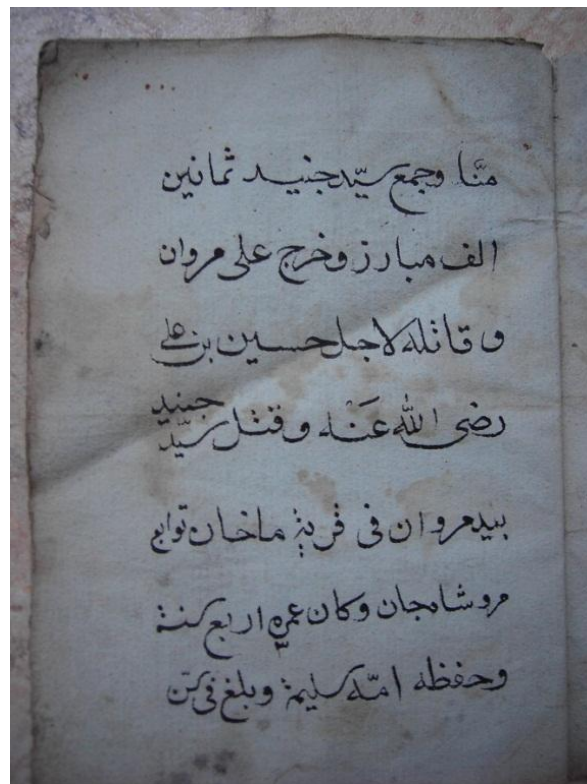 منّا وجمع سيّد جنيد ثمانين
الف مبارز وخرج على مروان
وقاتله لاجل حسين بن على
رضى الله عنه وقتل سيّد جنيد
بيد مروان فى قرية ماخان توابع
مروشاهجان وكان عمره اربع سنة
وحفظه امّه سليمة وبلغ فى سن